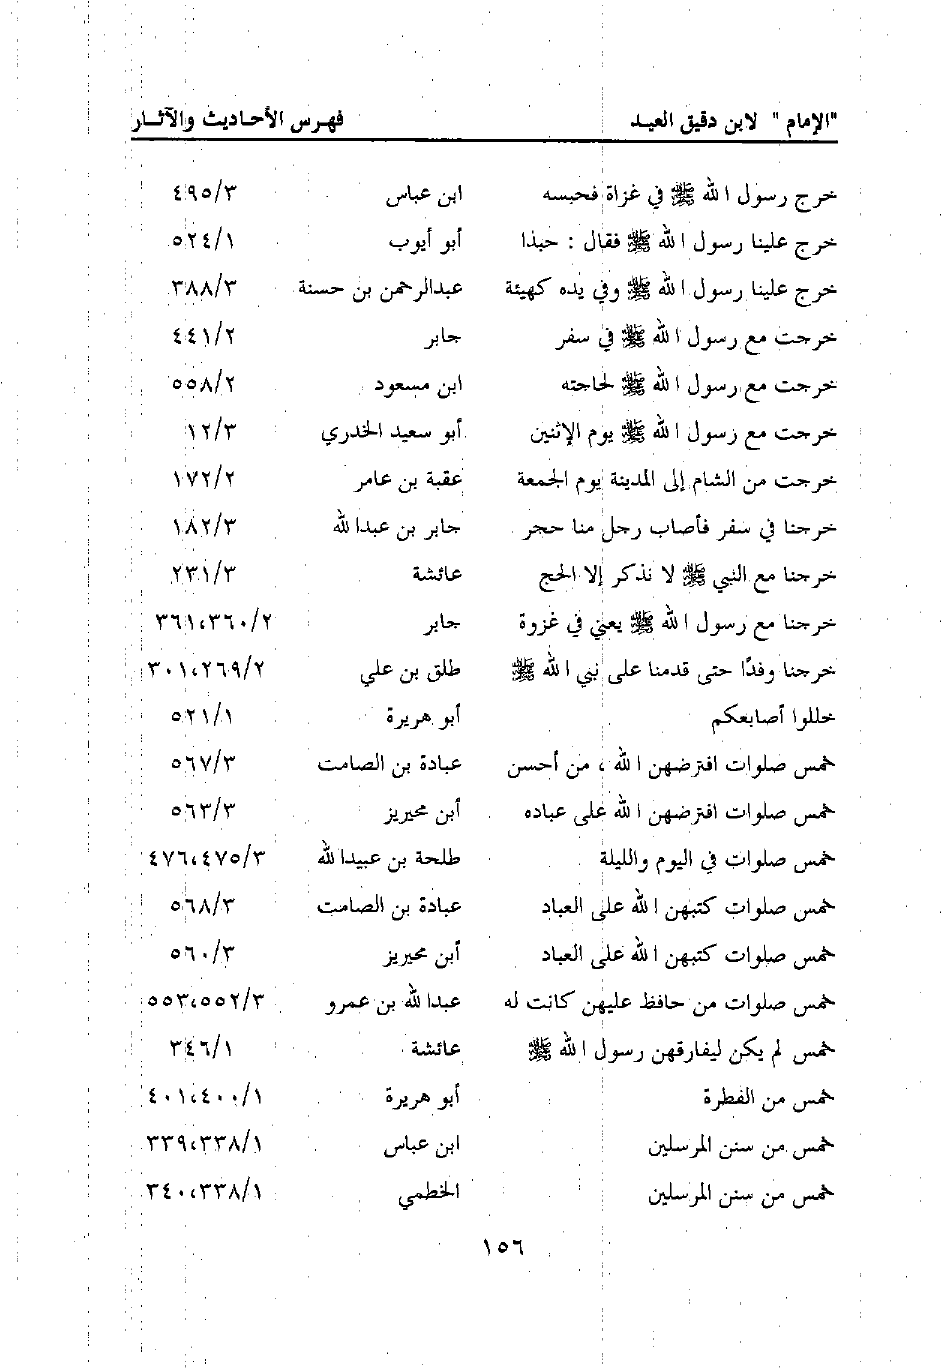 "الإمام" لابن دقيق العيد فهرس الأحاديث والآثار
خرج رسول الله ﷺ في غزاة فحبسه ابن عباس ٤٩٥/٣
خرج علينا رسول الله ﷺ فقال : حبذا أبو أيوب ٥٢٤/١
خرج علينا رسول الله ﷺ وفي يده كهيئة عبدالرحمن بن حسنة ٣٨٨/٣
خرجت مع رسول الله ﷺ في سفر جابر ٤٤١/٢
خرجت مع رسول الله ﷺ لحاجته ابن مسعود ٥٥٨/٢
خرجت مع رسول الله ﷺ يوم الإثنين أبو سعيد الخدري ١٢/٣
خرجت من الشام إلى المدينة يوم الجمعة عقبة بن عامر ١٧٢/٢
خرجنا في سفر فأصاب رجل منا حجر جابر بن عبدالله ١٨٢/٣
خرجنا مع النبي ﷺ لا نذكر إلا الحج عائشة ٢٣١/٣
خرجنا مع رسول الله ﷺ يعني في غزوة جابر ٣٦١،٣٦٠/٢
خرجنا وفدًا حتى قدمنا على نبي الله ﷺ طلق بن علي ٣٠١،٢٦٩/٢
خللوا أصابعكم أبو هريرة ٥٢١/١
خمس صلوات افترضهن الله ، من أحسن عبادة بن الصامت ٥٦٧/٣
خمس صلوات افترضهن الله على عباده أبن محيريز ٥٦٣/٣
خمس صلوات في اليوم والليلة طلحة بن عبيدالله ٤٧٦،٤٧٥/٣
خمس صلوات كتبهن الله على العباد عبادة بن الصامت ٥٦٨/٣
خمس صلوات كتبهن الله على العباد أبن محيريز ٥٦٠/٣
خمس صلوات من حافظ عليهن كانت له عبدالله بن عمرو ٥٥٣،٥٥٢/٣
خمس لم يكن ليفارقهن رسول الله ﷺ عائشة ٣٤٦/١
خمس من الفطرة أبو هريرة ٤٠١،٤٠٠/١
خمس من سنن المرسلين ابن عباس ٣٣٩،٣٣٨/١
خمس من سنن المرسلين الخطمي ٣٤٠،٣٣٨/١
١٥٦